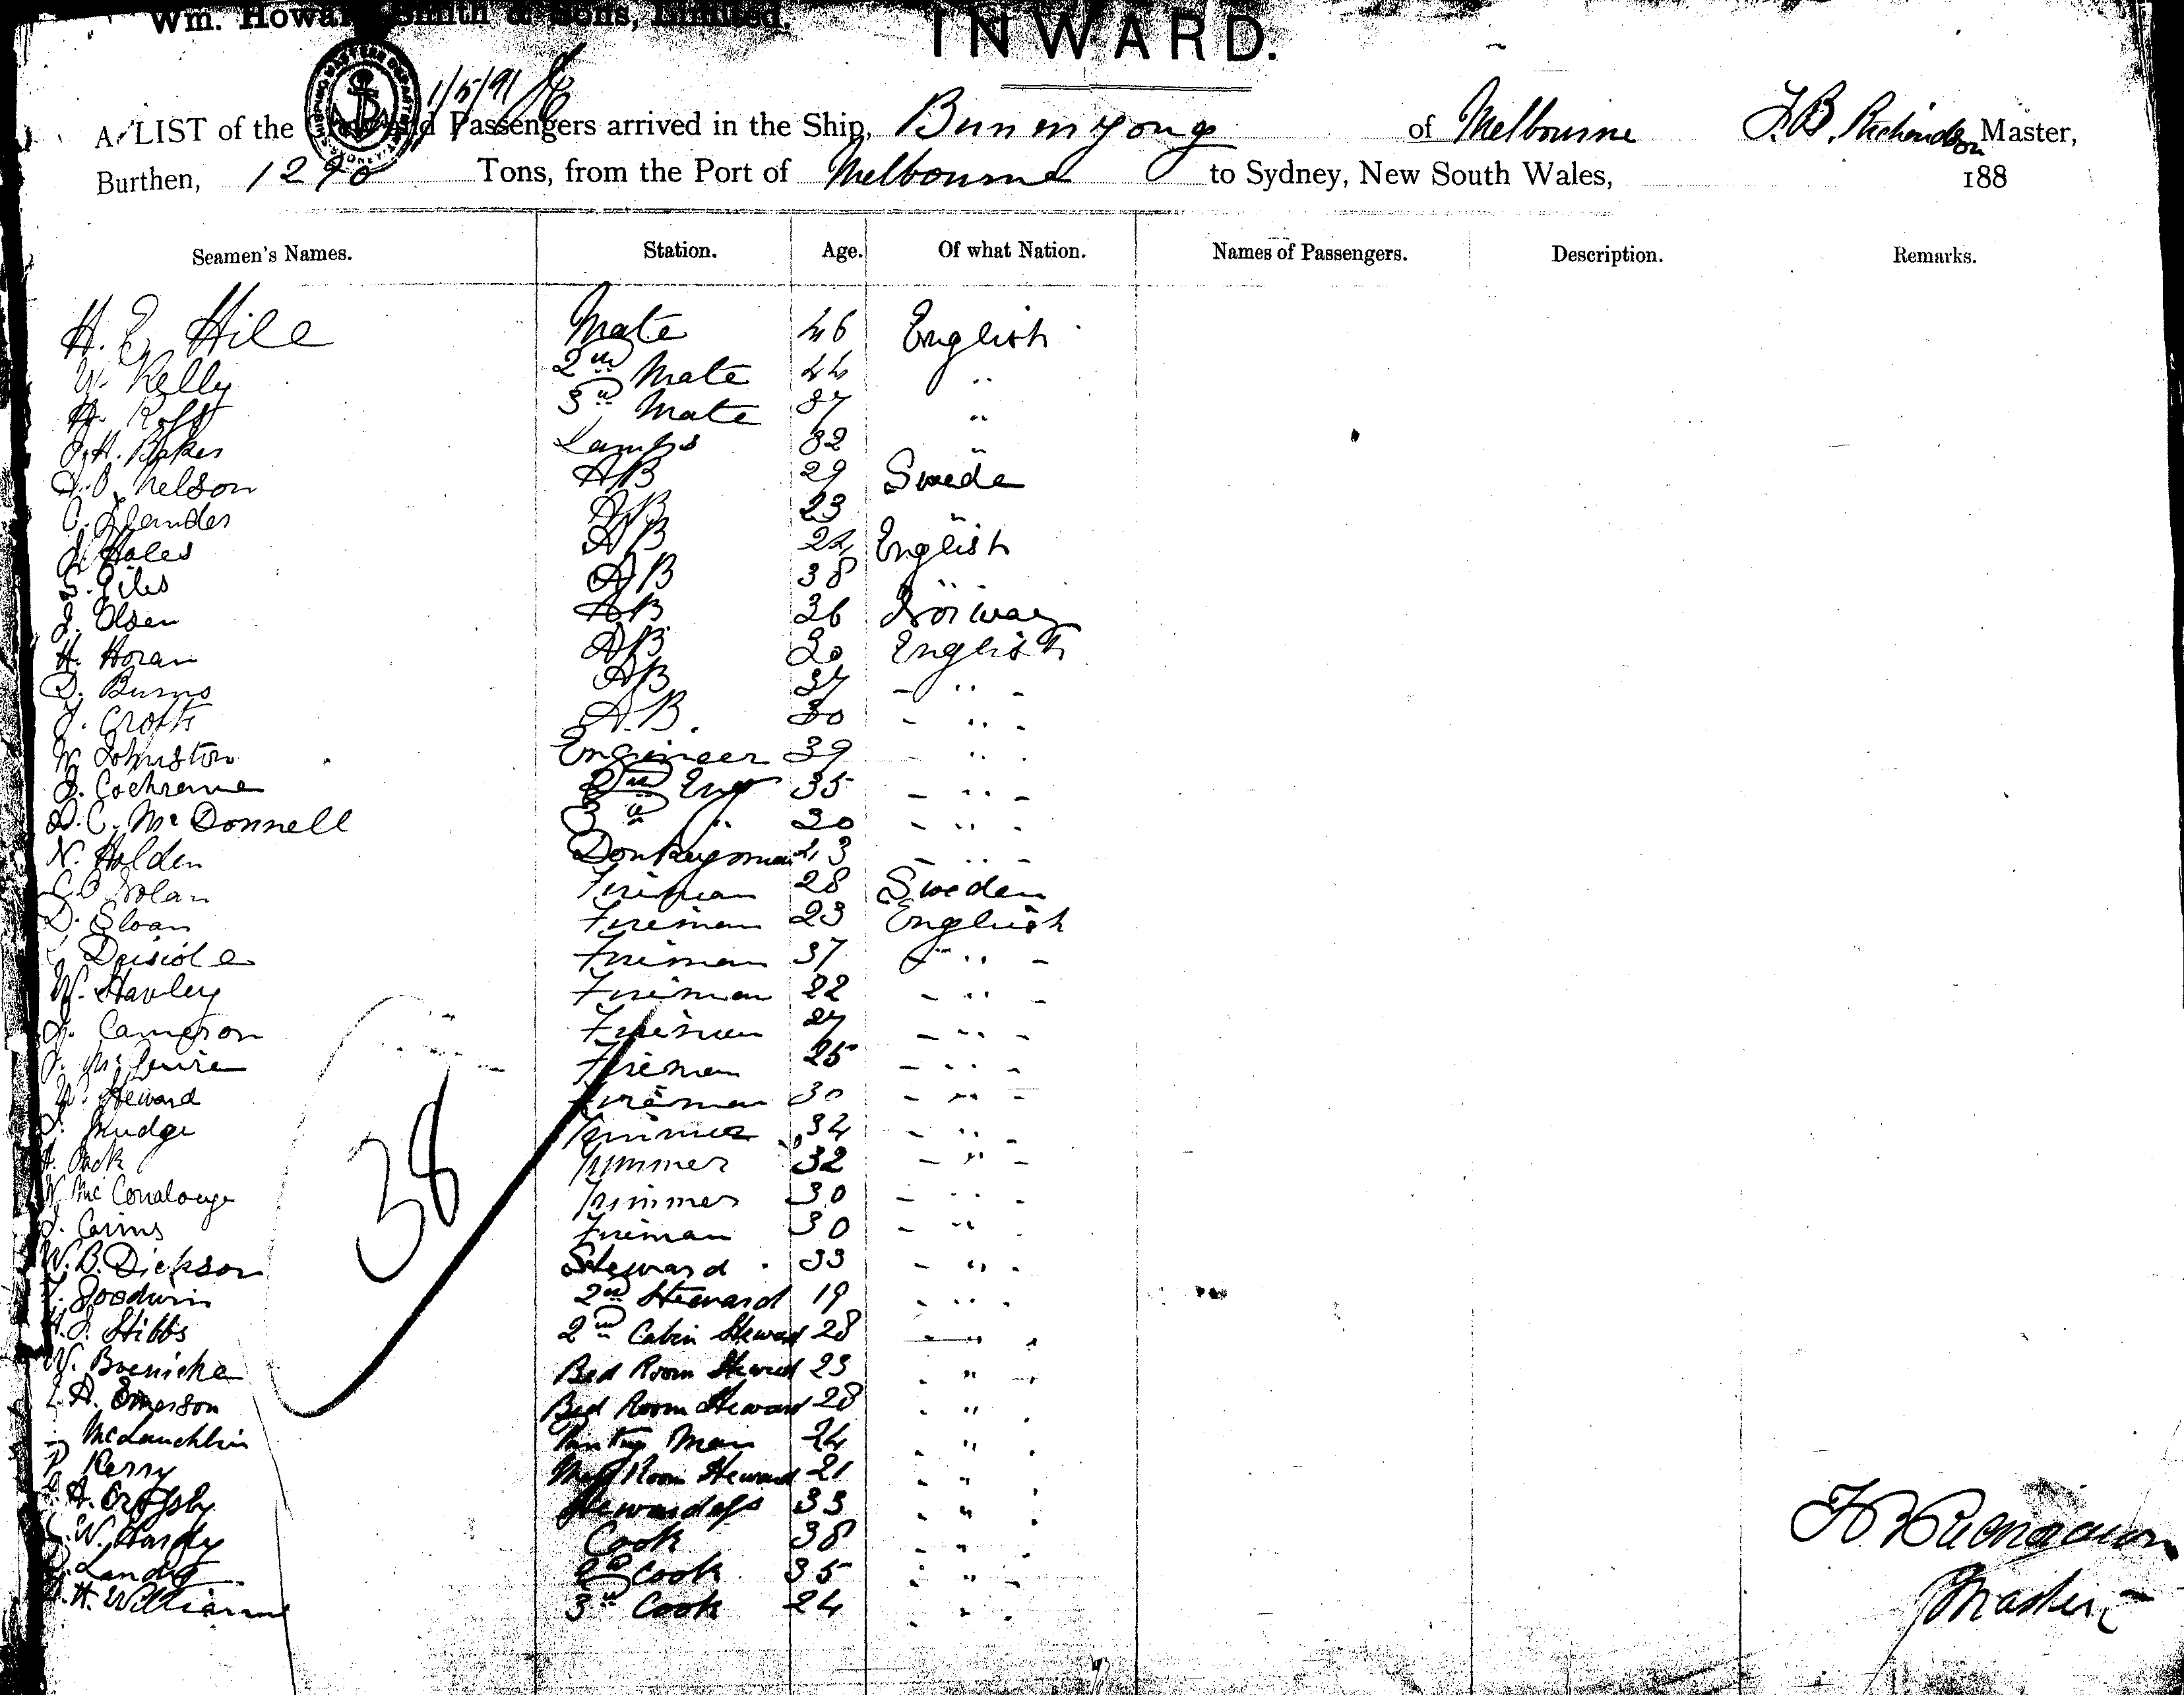 Wm. Howard Smith & Sons, Limited.
INWARD.
1/5/91
A LIST of the Crew and Passengers arrived in the Ship, Buninyong of Melbourne F.B. Richardson Master,
Burthen, 1290 Tons, from the Port of Melbourne to Sydney, New South Wales, 188
Seamen's Names. Station. Age. Of what Nation. Names of Passengers. Description. Remarks.
H. E. Hill Mate 46 English
W. Kelly 2nd Mate 44 "
H. Ross 3rd Mate 37 "
H. Baker Lamps 32 "
Nelson AB 29 Swede
C. AB 23 "
J. Hales AB 24 English
S. Giles AB 38 "
J. Olsen AB 26 Norway
H. Horan AB 30 English
D. Burns AB 37 - " -
J. Croft A.B. 30 - " -
W. Johnston Engineer 39 "
J. Cochrane 2nd Eng 35 - " -
D. C. McDonnell 3rd " 30 - " -
N. Holden Donkeyman 43 - " -
Nolan Fireman 28 Sweden
D. Sloan Fireman 23 English
Fireman 37 " -
W. Hanley Fireman 22 - " -
J. Cameron Fireman 27 - " -
J. McGuire Fireman 25 - " -
W. Steward Fireman 30 - " -
J. Mudge Trimmer 34 - " -
Jack Trimmer 32 - " -
Trimmer 30 - " -
J. Cairns Fireman 30 - "
W. B. Dickson Steward 33 - " -
Goodwin 2nd Steward 19 - " -
Stibbs 2nd Cabin Steward 28 - " -
W. Boenicke Bed Room Steward 23 - " -
A. Emerson Bed Room Steward 28 - " -
McLauchlin Pantry Man 24 - " -
Kerry Mess Room Steward 21 - " -
A. Crossby Stewardess 33 - " -
W. Hardy Cook 38 - " -
2nd Cook 35 - " -
H. Williams 3rd Cook 24 - " -
38
F B Richardson
Master